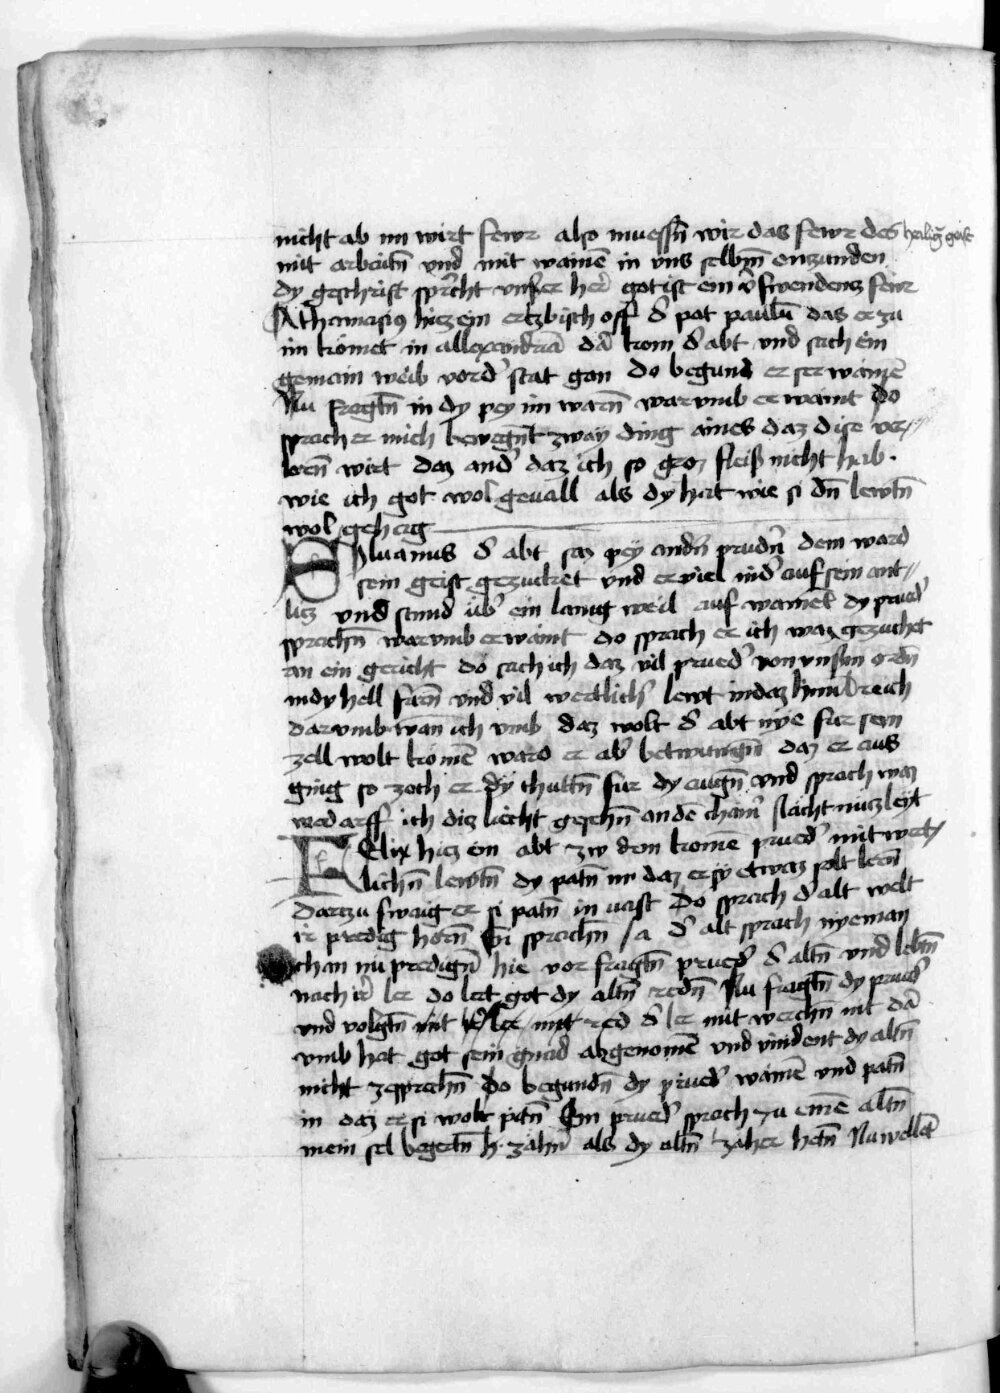 nicht ab im wirt fewr also muessñ wir das fewr des heilig̃ geist
mit arbaitñ vnd mit wainē in vns selbm̄ enczunden
dy geschrift spricht vnser her̄ got ist ein v̓swendencz fewr
Athanasius hies ein ertzbischoff d̓ pat paulū das er zu
im kömet in allexandriā dā kom d̓ abt vnd sach ein
gemain weib vor d̓ stat gan do begund er ser wainē
Nu fragtñ in dy pey im warñ warumb er waint Do
sprach er mich bewegnt zway ding aines daz dise ver//
lorñ wirt daz and̓ daz ich so groz fleiß nicht hab .
wie ich got wol geuall als dy hat wie si dñ lewtñ
wol gehag
Siluanus d̓ abt saz pey andn̓ prudn̓ dem ward
sein geist gezucket vnd er viel nid̓ auf sein ant//
licz vnd stund üb̓ ein lanng weil auf wainēt dy prued̓
sprachñ warumb er waint do sprach er ich waz gezuchet
an ein gericht do sach ich daz vil prued̓ von vnsm̄ ordñ
in dy hell furñ vnd vil wertlich̓ lewt in daz himlreich
darumb wan ich vmb daz wolt d̓ abt nye fur sein
zell wolt komē ward er ab̓ betwungñ daz er aus
ging so zoch er dy chuttñ fur dy augñ vnd sprach waz
wedarff ich diz liecht gesehñ an dē chain̓ nacht nucz leyt
Felix hiez ein abt zw dem komē prued̓ mit wert/
lichñ lewtñ dy patñ in daz er sy etwaz solt lerñ
Darczu swaig er si patñ in vast Do sprach d̓ alt welt
ir predig hörñ Si sprachñ Ja d̓ alt sprach nyeman
chan nu predigñ hie vor fragtñ prued̓ d̓ altñ vnd lebtñ
nach ir̄ ler do lert got dy altñ redñ Nu fragtñ dy prued̓
vnd volgtñ nit ler mit red d̓ ler mit werchñ nit dā
vmb hat got sein gnad abgenomē vnd vindent dy altñ
nicht zesprechñ Do begundñ dy prued̓ wainē vnd patñ
in daz er si wolt pitñ Ein prued̓ sprach zu einē altñ
mein sel begertñ zähñ als dy altñ zäher hetñ Nu wellet̄